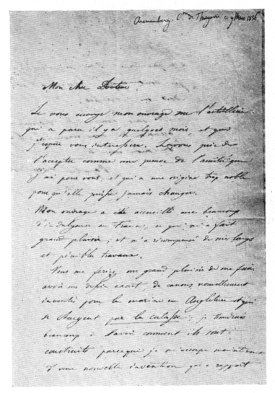 Arenenberg, Con de Thurgovie ce 9 Mars 1836
Mon cher Docteur
Je vous envoye mon ouvrage sur l'artillerie
qui a paru il y a quelques mois, et que
j'espère vous intéressera. Je vous prie de
l'accepter comme une preuve de l'amitié que
j'ai pour vous et qui a une origine trop noble
pour qu'elle puisse jamais changer.
Mon ouvrage a été accueilli avec beaucoup
d'indulgence en France, ce qui m'a fait
grand plaisir, et m'a récompensé de mes longs
et pénibles travaux.
Vous me feriez un grand plaisir de me faire
avoir un dessin exact de canons nouvellement
inventés pour la marine en Angleterre et qui
se chargent par la culasse; je tiendrais
beaucoup à savoir comment ils sont
construits parceque je m'occupe maintenant
d'une nouvelle invention qui a rapport